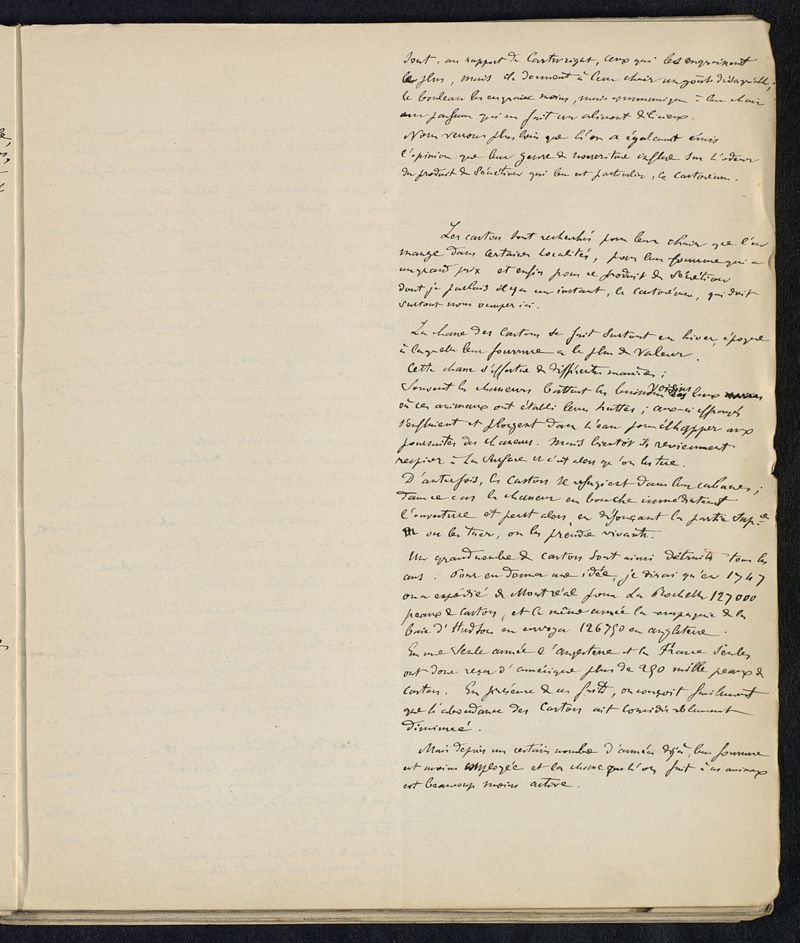 sont, au rapport de Cartwright, ceux qui les engraissent
le plus, mais ils donnent à leur chair un goût désagréable;
le bouleau les engraisse moins, mais communique à leur chair
un parfum qui en fait un aliment délicieux.
Nous verrons plus loin que l'on a également émis
l'opinion que leur genre de nourriture influe sur l'odeur
du produit de Sécrétion qui leur est particulier, le castoréum.
Les castors sont recherchés pour leur chair que l'on
mange dans certaines localités, pour leur fourrure qui a
un grand prix et enfin pour ce produit de Sécrétion
dont je parlais il y a un instant, le castoréum, qui doit
surtout nous occuper ici.
La chasse des Castors se fait surtout en hiver, époque
à laquelle leur fourrure a le plus de valeur.
Cette chasse s'effectue de différentes manières;
Souvent les chasseurs battent les buissons voisins des lieux
où ces animaux ont établi leurs huttes; ceux-ci effrayés
s'enfuient et plongent dans l'eau pour échapper aux
poursuites des chasseurs. Mais bientôt ils reviennent
respirer à la surface et c'est alors qu'on les tue.
D'autrefois, les Castors se réfugient dans leurs cabanes;
Dans ce cas le chasseur en bouche immédiatement
l'ouverture et peut alors, en défonçant la partie supre
ou les tuer, ou les prendre vivants.
Un grand nombre de castors sont ainsi détruits tous les
ans. Pour en donner une idée, je dirai qu'en 1747
on a expédié de Montréal pour La Rochelle 127000
peaux de castors, et la même année la compagnie de la
baie d'Hudson en envoya 126750 en angleterre.
En une seule année l'angleterre et la France seules
ont donc reçu d'amérique plus de 250 mille peaux de
castors. En présence de ces faits, on conçoit facilement
que l'abondance des Castors ait considérablement
diminué.
Mais depuis un certain nombre d'années déjà, leur fourrure
est moins employée et la chasse que l'on fait à ces animaux
est beaucoup moins active.